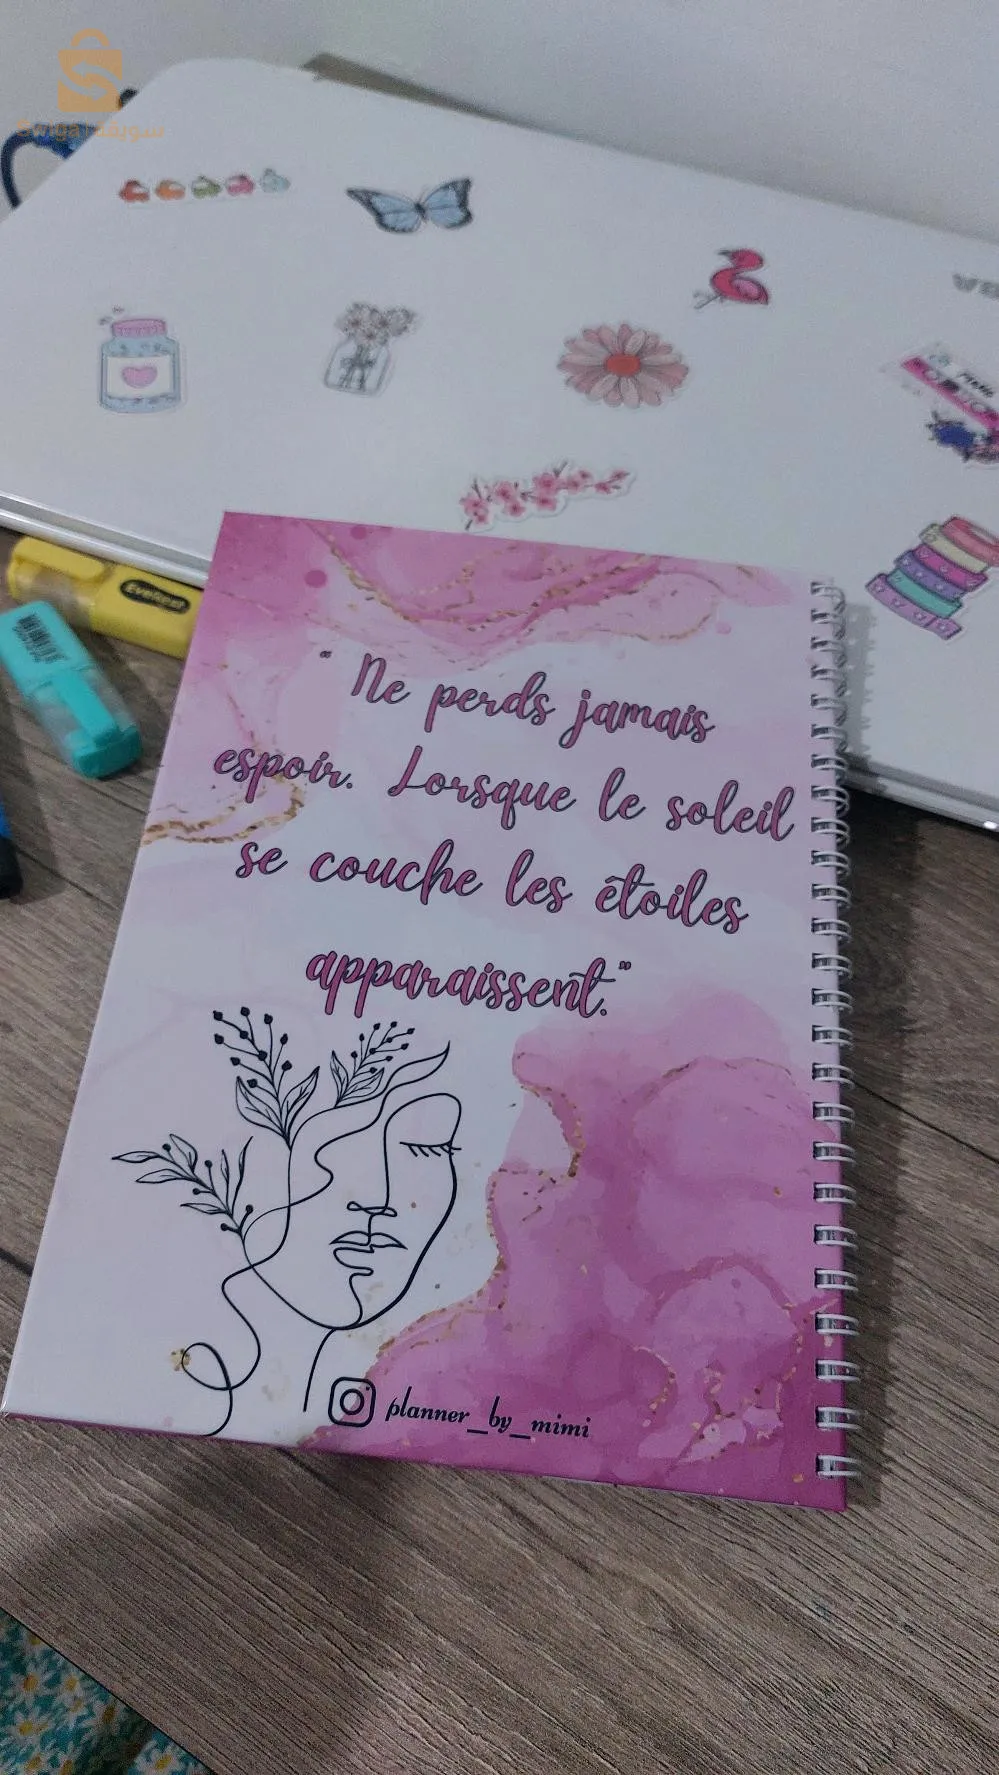 سويقة
Eveready
“ Ne perds jamais
espoir. Lorsque le soleil
se couche les étoiles
apparaissent.”
planner_by_mimi